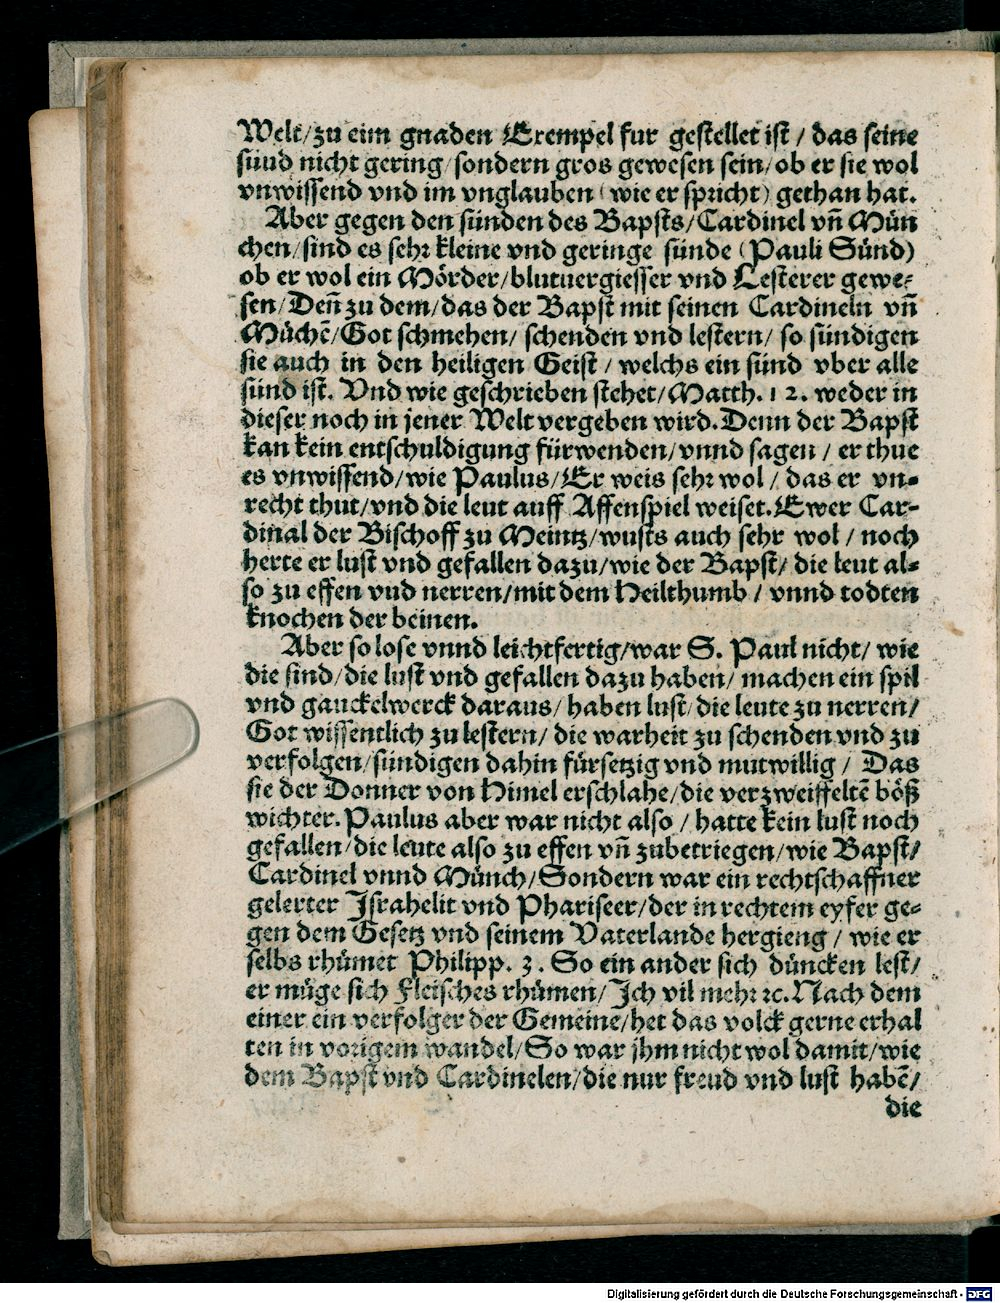 Welt/zu eim gnaden Exempel fur gestellet ist / das seine
sünd nicht gering/sondern gros gewesen sein/ob er sie wol
vnwissend vnd im vnglauben (wie er spricht) gethan hat.
Aber gegen den sünden des Bapsts/Cardinel vñ Mün
chen/sind es sehr kleine vnd geringe sünde (Pauli Sünd)
ob er wol ein Mörder/blutuergiesser vnd Lesterer gewe-
sen/Deñ zu dem/das der Bapst mit seinen Cardineln vñ
Müchẽ/Got schmehen/ schenden vnd lestern/ so sündigen
sie auch in den heiligen Geist / welchs ein sünd vber alle
sünd ist. Vnd wie geschrieben stehet/Matth. 12. weder in
dieser noch in jener Welt vergeben wird. Denn der Bapst
kan kein entschuldigung fürwenden/vnnd sagen / er thue
es vnwissend/wie Paulus/Er weis sehr wol / das er vn-
recht thut/vnd die leut auff Affenspiel weiset. Ewer Car-
dinal der Bischoff zu Meintz/wusts auch sehr wol / noch
herte er lust vnd gefallen dazu/wie der Bapst/ die leut al-
so zu effen vnd nerren/mit dem Heilthumb / vnnd todten
knochen der beinen.
Aber so lose vnnd leichtfertig/war S. Paul nicht/ wie
die sind/die lust vnd gefallen dazu haben/ machen ein spil
vnd gauckelwerck daraus/ haben lust/die leute zu nerren/
Got wissentlich zu lestern/ die warheit zu schenden vnd zu
verfolgen/sündigen dahin fürsetzig vnd mutwillig / Das
sie der Donner von Himel erschlahe/die verzweiffeltẽ böß
wichter. Paulus aber war nicht also / hatte kein lust noch
gefallen/die leute also zu effen vñ zubetriegen/wie Bapst/
Cardinel vnnd Münch/Sondern war ein rechtschaffner
gelerter Israhelit vnd Phariseer/der in rechtem eyfer ge-
gen dem Gesetz vnd seinem Vaterlande hergieng / wie er
selbs rhümet Philipp. 3. So ein ander sich düncken lest/
er müge sich Fleisches rhümen/Ich vil mehr ꝛc. Nach dem
einer ein verfolger der Gemeine/het das volck gerne erhal
ten in vorigem wandel/So war jhm nicht wol damit/wie
dem Bapst vnd Cardinelen/die nur freud vnd lust habẽ/
die
Digitalisierung gefördert durch die Deutsche Forschungsgemeinschaft - DFG